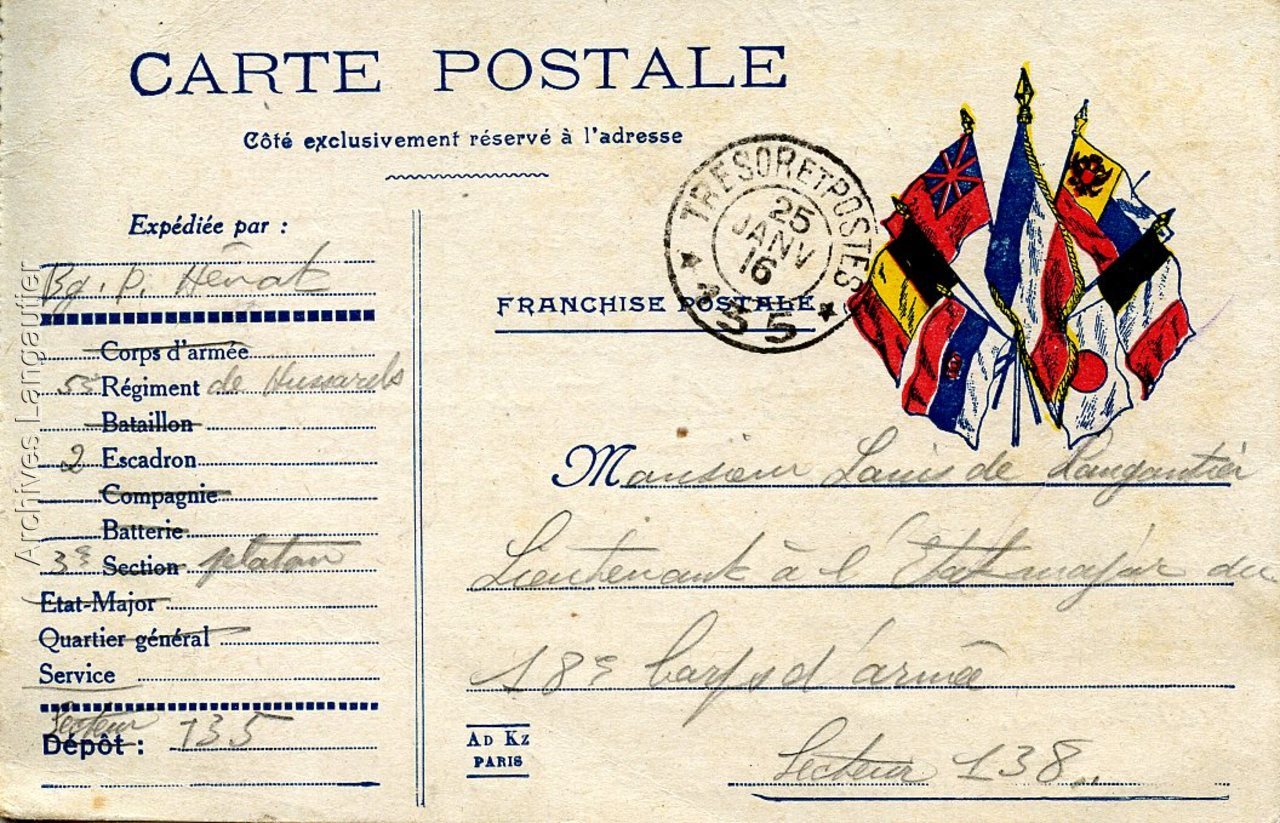 CARTE POSTALE
Côté exclusivement réservé à l'adresse
TRESOR ET POSTES
25
JANV
16
* 135 *
FRANCHISE POSTALE
Expédiée par :
Bg. P. Hénat
Corps d'armée
5e Régiment de Hussards
Bataillon
2 Escadron
Compagnie
Batterie
3e Section peloton
Etat-Major
Quartier général
Service
Secteur
Dépôt : 135
Monsieur Louis de Langautier
Lieutenant à l'Etat major du
18e Corps d'armée
Secteur 138
AD KZ
PARIS
Archives Langautier